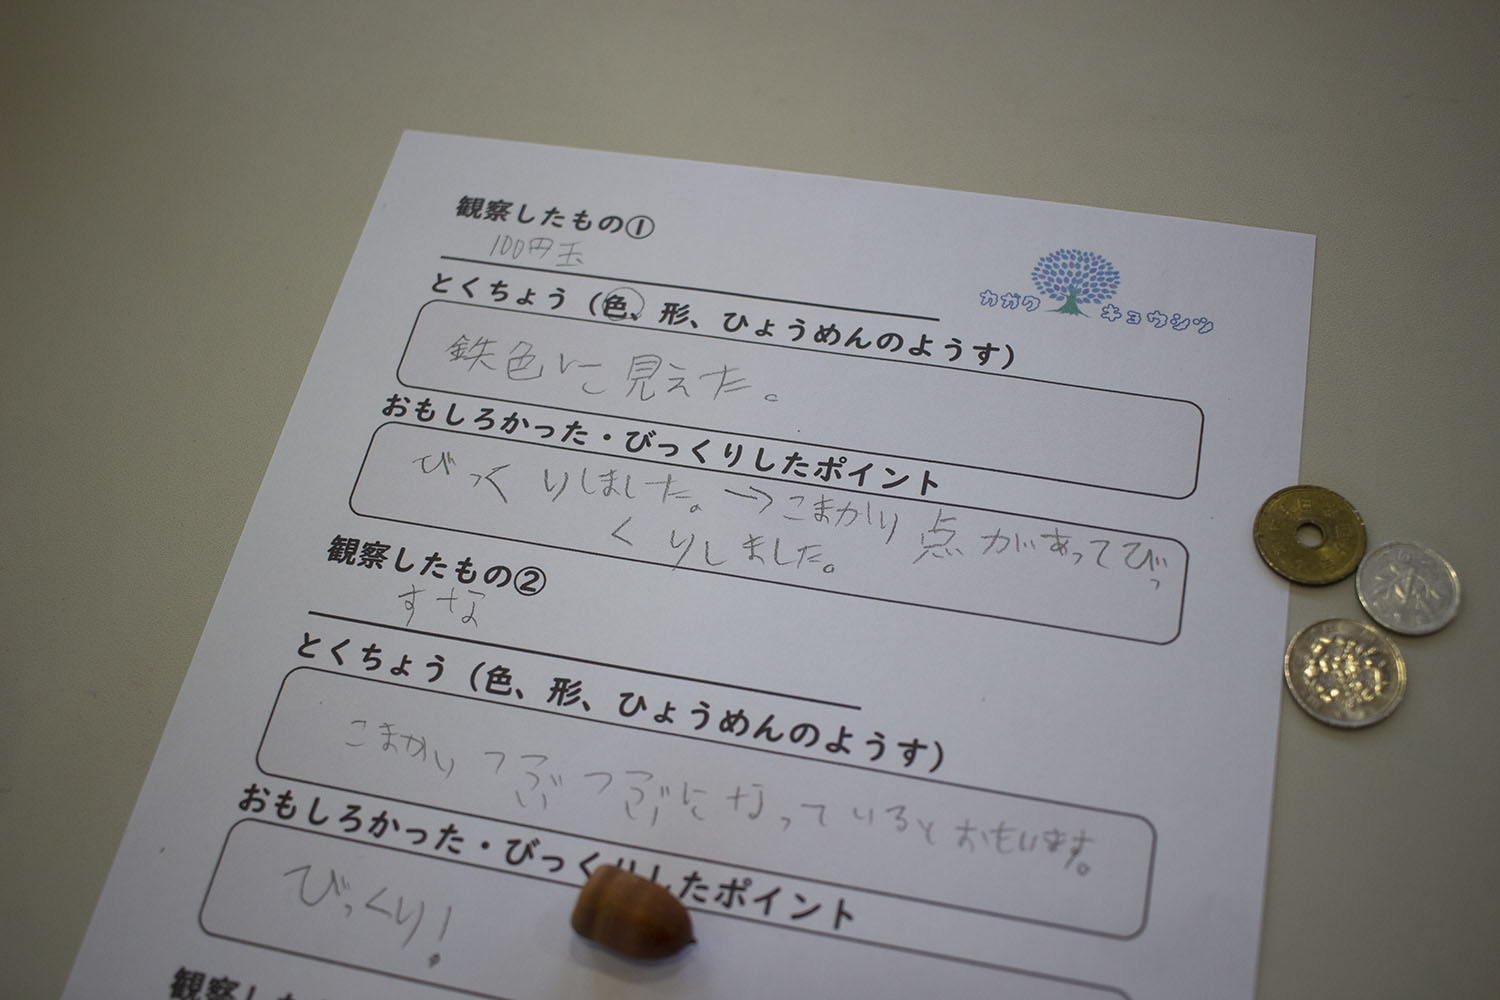 観察したもの①
100円玉
カガク キョウシツ
とくちょう（色、形、ひょうめんのようす）
鉄色に見えた。
おもしろかった・びっくりしたポイント
びっくりしました。→こまかい点があってびっ
くりしました。
観察したもの②
すな
とくちょう（色、形、ひょうめんのようす）
こまかいつぶつぶになっているとおもいます。
おもしろかった・びっくりしたポイント
びっくり!
観察した